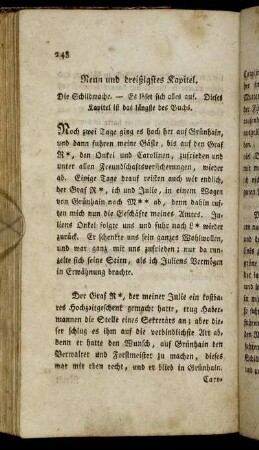 248
Neun und dreißigstes Kapitel.
Die Schildwache. — Es löset sich alles auf. Dieses
Kapitel ist das längste des Buchs.
Noch zwei Tage ging es hoch her auf Grünhain,
und dann fuhren meine Gäste, bis auf den Graf
R*, den Onkel und Carolinen, zufrieden und
unter allen Freundschaftsversicherungen, wieder
ab. Einige Tage drauf reisten auch wir endlich,
der Graf R*, ich und Julie, in einem Wagen
von Grünhain nach M** ab, denn dahin rufen
mich nun die Geschäfte meines Amtes. Juliens
Onkel folgte uns und fuhr nach L* wieder
zurück. Er schenkte uns sein ganzes Wohlwollen,
und war ganz mit uns zufrieden; nur da runzelte
sich seine Stirn, als ich Juliens Vermögen
in Erwähnung brachte.
Der Graf R*, der meiner Julie ein kostbares
Hochzeitgeschenk gemacht hatte, trug Habermannen
die Stelle eines Sekretärs an; aber dieser
schlug es ihm auf die verbindlichste Art ab,
denn er hatte den Wunsch, auf Grünhain den
Verwalter und Forstmeister zu machen, dieses
war mir eben recht, und er blieb in Grünhain.
Caro-